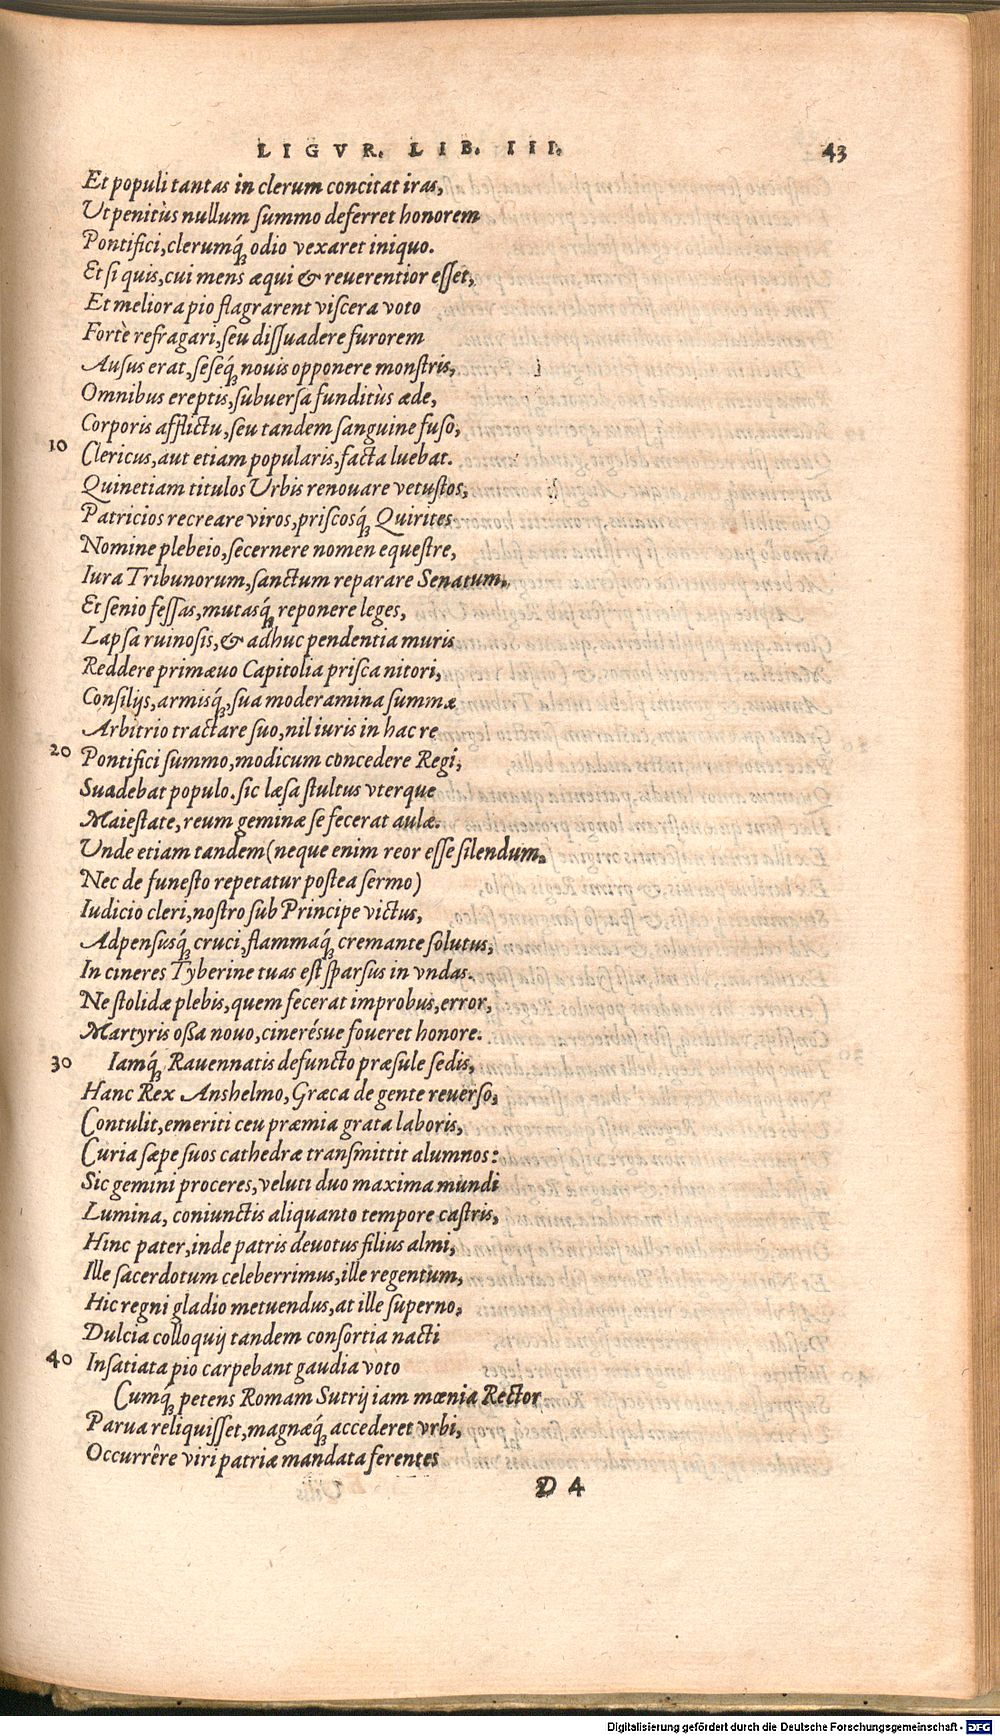 LIGVR. LIB. III. 43
Et populi tantas in clerum concitat iras,
Ut penitùs nullum summo deferret honorem
Pontifici, clerumq́; odio vexaret iniquo.
Et si quis, cui mens æqui & reverentior esset,
Et meliora pio flagrarent viscera voto
Fortè refragari, seu dissuadere furorem
Ausus erat, seseq́; novis opponere monstris,
Omnibus ereptis, subuersa funditùs æde,
Corporis afflictu, seu tandem sanguine fuso,
10 Clericus, aut etiam popularis, facta luebat.
Quinetiam titulos Urbis renouare vetustos,
Patricios recreare viros, priscosq́; Quirites
Nomine plebeio, secernere nomen equestre,
Iura Tribunorum, sanctum reparare Senatum,
Et senio fessas, mutasq́; reponere leges,
Lapsa ruinosis, & adhuc pendentia muris
Reddere primævo Capitolia prisca nitori,
Consilijs, armisq́;, sua moderamina summæ
Arbitrio tractare suo, nil iuris in hac re
20 Pontifici summo, modicum concedere Regi,
Suadebat populo. sic læsa stultus vterque
Maiestate, reum geminæ se fecerat aulæ.
Unde etiam tandem (neque enim reor esse silendum,
Nec de funesto repetatur postea sermo)
Iudicio cleri, nostro sub Principe victus,
Adpensusq́; cruci, flammaq́; cremante solutus,
In cineres Tyberine tuas est sparsus in vndas.
Ne stolidæ plebis, quem fecerat improbus, error,
Martyris ossa nouo, cinerésve foveret honore.
30 Iamq́; Rauennatis defuncto præsule sedis,
Hanc Rex Anshelmo, Græca de gente reuerso,
Contulit, emeriti ceu præmia grata laboris,
Curia sæpe suos cathedræ transmittit alumnos:
Sic gemini proceres, veluti duo maxima mundi
Lumina, coniunctis aliquanto tempore castris,
Hinc pater, inde patris deuotus filius almi,
Ille sacerdotum celeberrimus, ille regentum,
Hic regni gladio metuendus, at ille superno,
Dulcia colloquij tandem consortia nacti
40 Insatiata pio carpebant gaudia voto
Cumq́; petens Romam Sutrij iam mœnia Rector
Parua reliquisset, magnæq́; accederet vrbi,
Occurrêre viri patriæ mandata ferentes
D 4
Digitalisierung gefördert durch die Deutsche Forschungsgemeinschaft - DFG